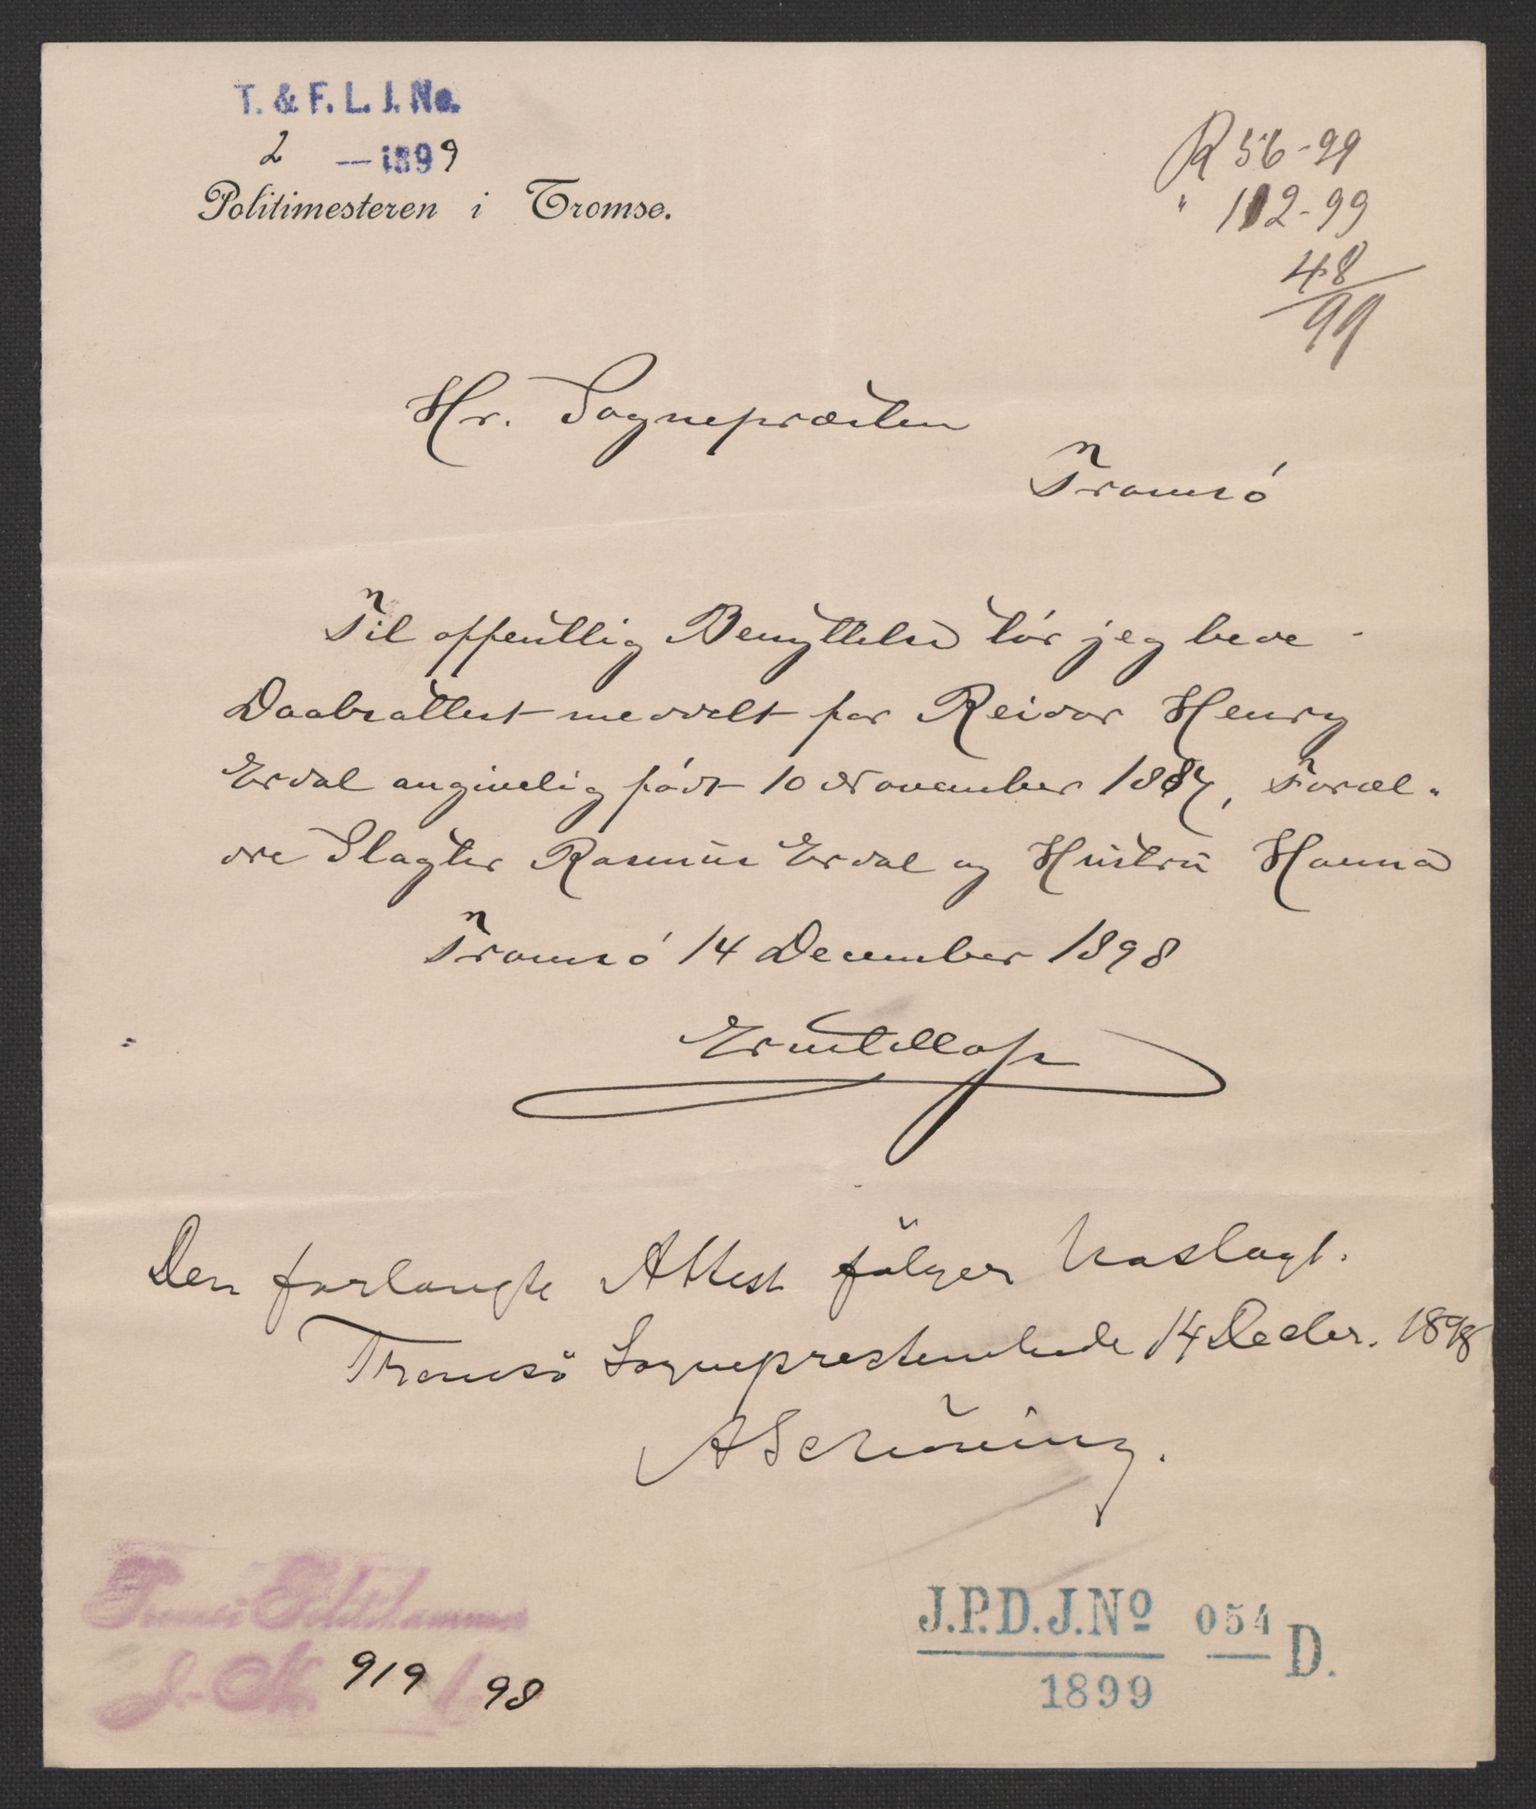 T. & F. L. J. No.
2 — 1899
Politimesteren i Tromsø.
R 56-99
" 112-99
48/99
Hr. Sognepræsten
Tromsó
Til offentlig Benyttelse tór jeg bede
Daabsattest meddelt for Reidar Henry
Erdal angivelig fódt 10 November 1887, Foræl-
dre Slagter Rasmus Erdal og Hustru Hanna
Tromsó 14 December 1898
Den forlangte Attest fölger vedlagt.
Tromsö Sogneprestembede 14 Decbr. 1898
ASchöning.
Tromsö Politikammer
J.-No. 919/98
J.P.D.J.Nº 054 D.
1899